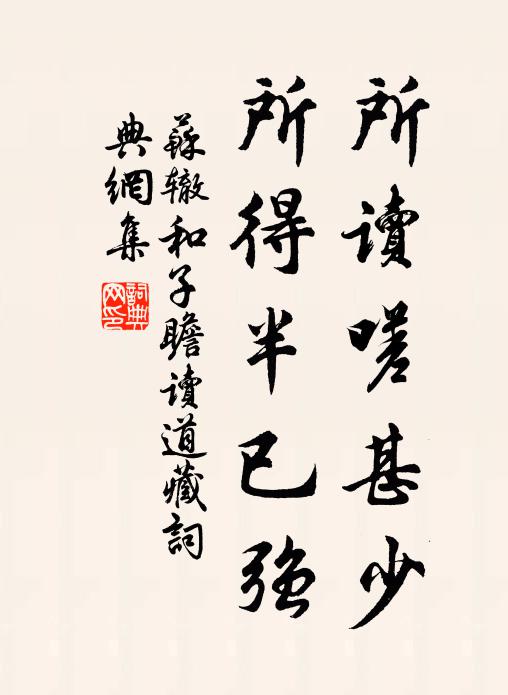 所讀嗟甚少
所得半已強
蘇辙和子瞻讀道藏詞
典網集
詞典网印